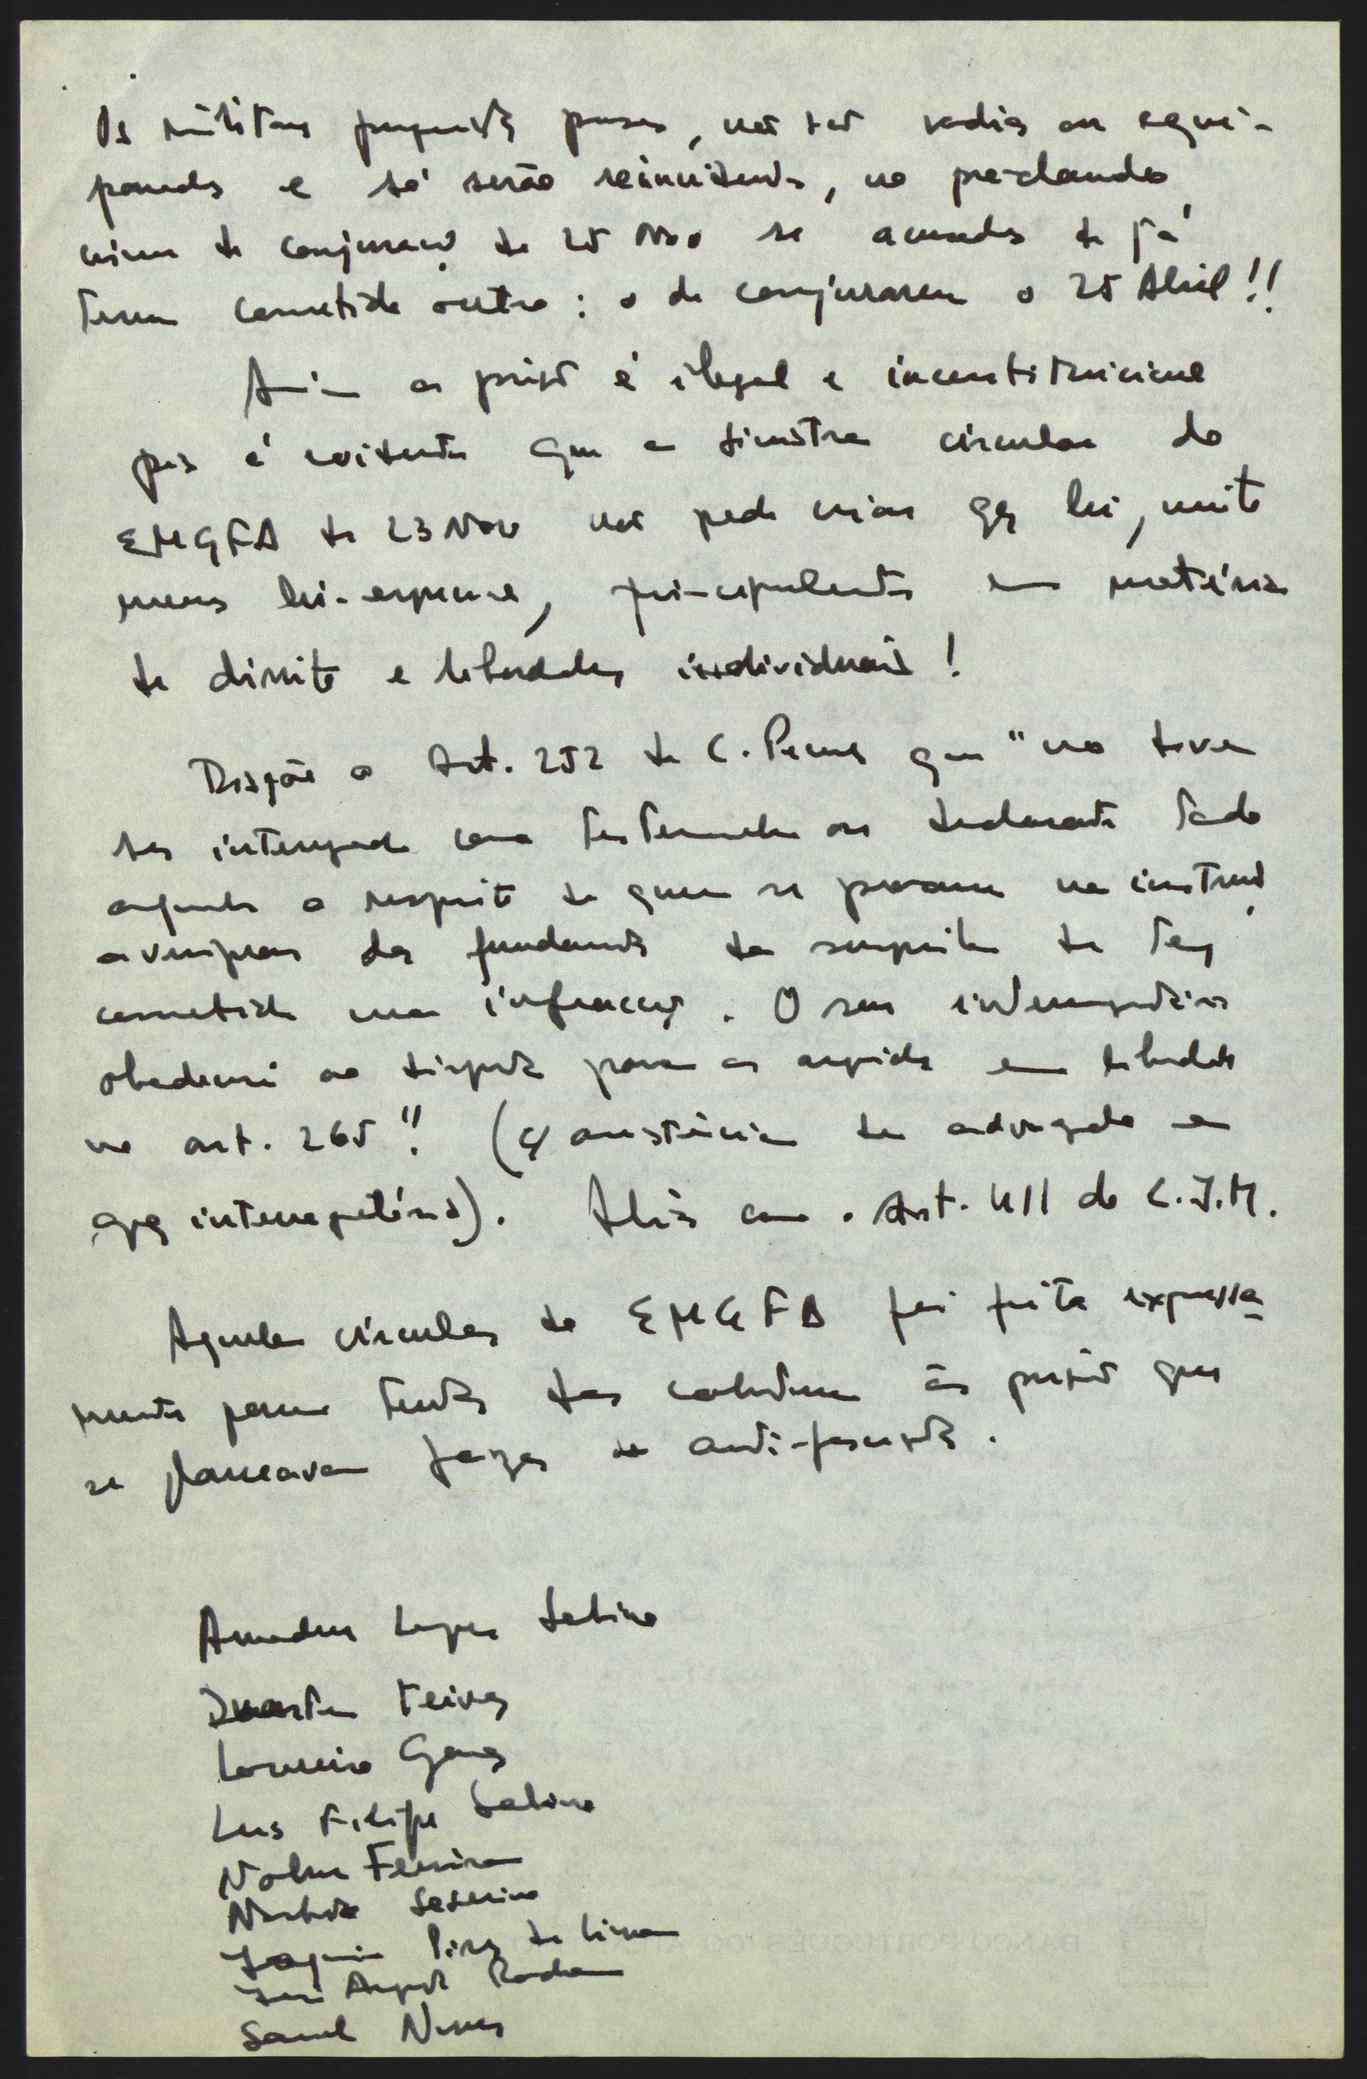 Os militares presos, não são vadios ou equi-
parados e só serão reincidentes, no proclamado
crime de conjuração de 25 Nov se acusados de já
terem cometido outro: o de conjurarem o 25 Abril!!
Assim as prisões é ilegal e inconstitucional
pois é evidente que a sinistra circular do
EMGFA de 23 Nov não pode criar qq lei, muito
menos lei-expressa, principalmente em matéria
de direitos e liberdades individuais!
Dispõe o Art. 252 do C. Penal que "no deve
ser interrogado como testemunha ou declarante todo
aquele a respeito de quem se procura na instrução
averiguar dos fundamentos da suspeita de ter
cometido uma infracção. O seu interrogatório
obedecerá ao disposto para os arguidos em liberdade
no art. 265". (c/ assistência de advogado em
qq interrogatório). Aliás como o Art. 411 do C.J.M.
Aquela circular do EMGFA foi feita expressa-
mente para tentar dar cobertura às prisões que
se planeavam fazer de anti-fascistas.
Amadeu Lopes Sabino
Duarte Teives
Loureiro Gomes
Luis Filipe Sabino
Ferreira
Severino
Joaquim Pires de Lima
José Augusto Rocha
Saul Nunes